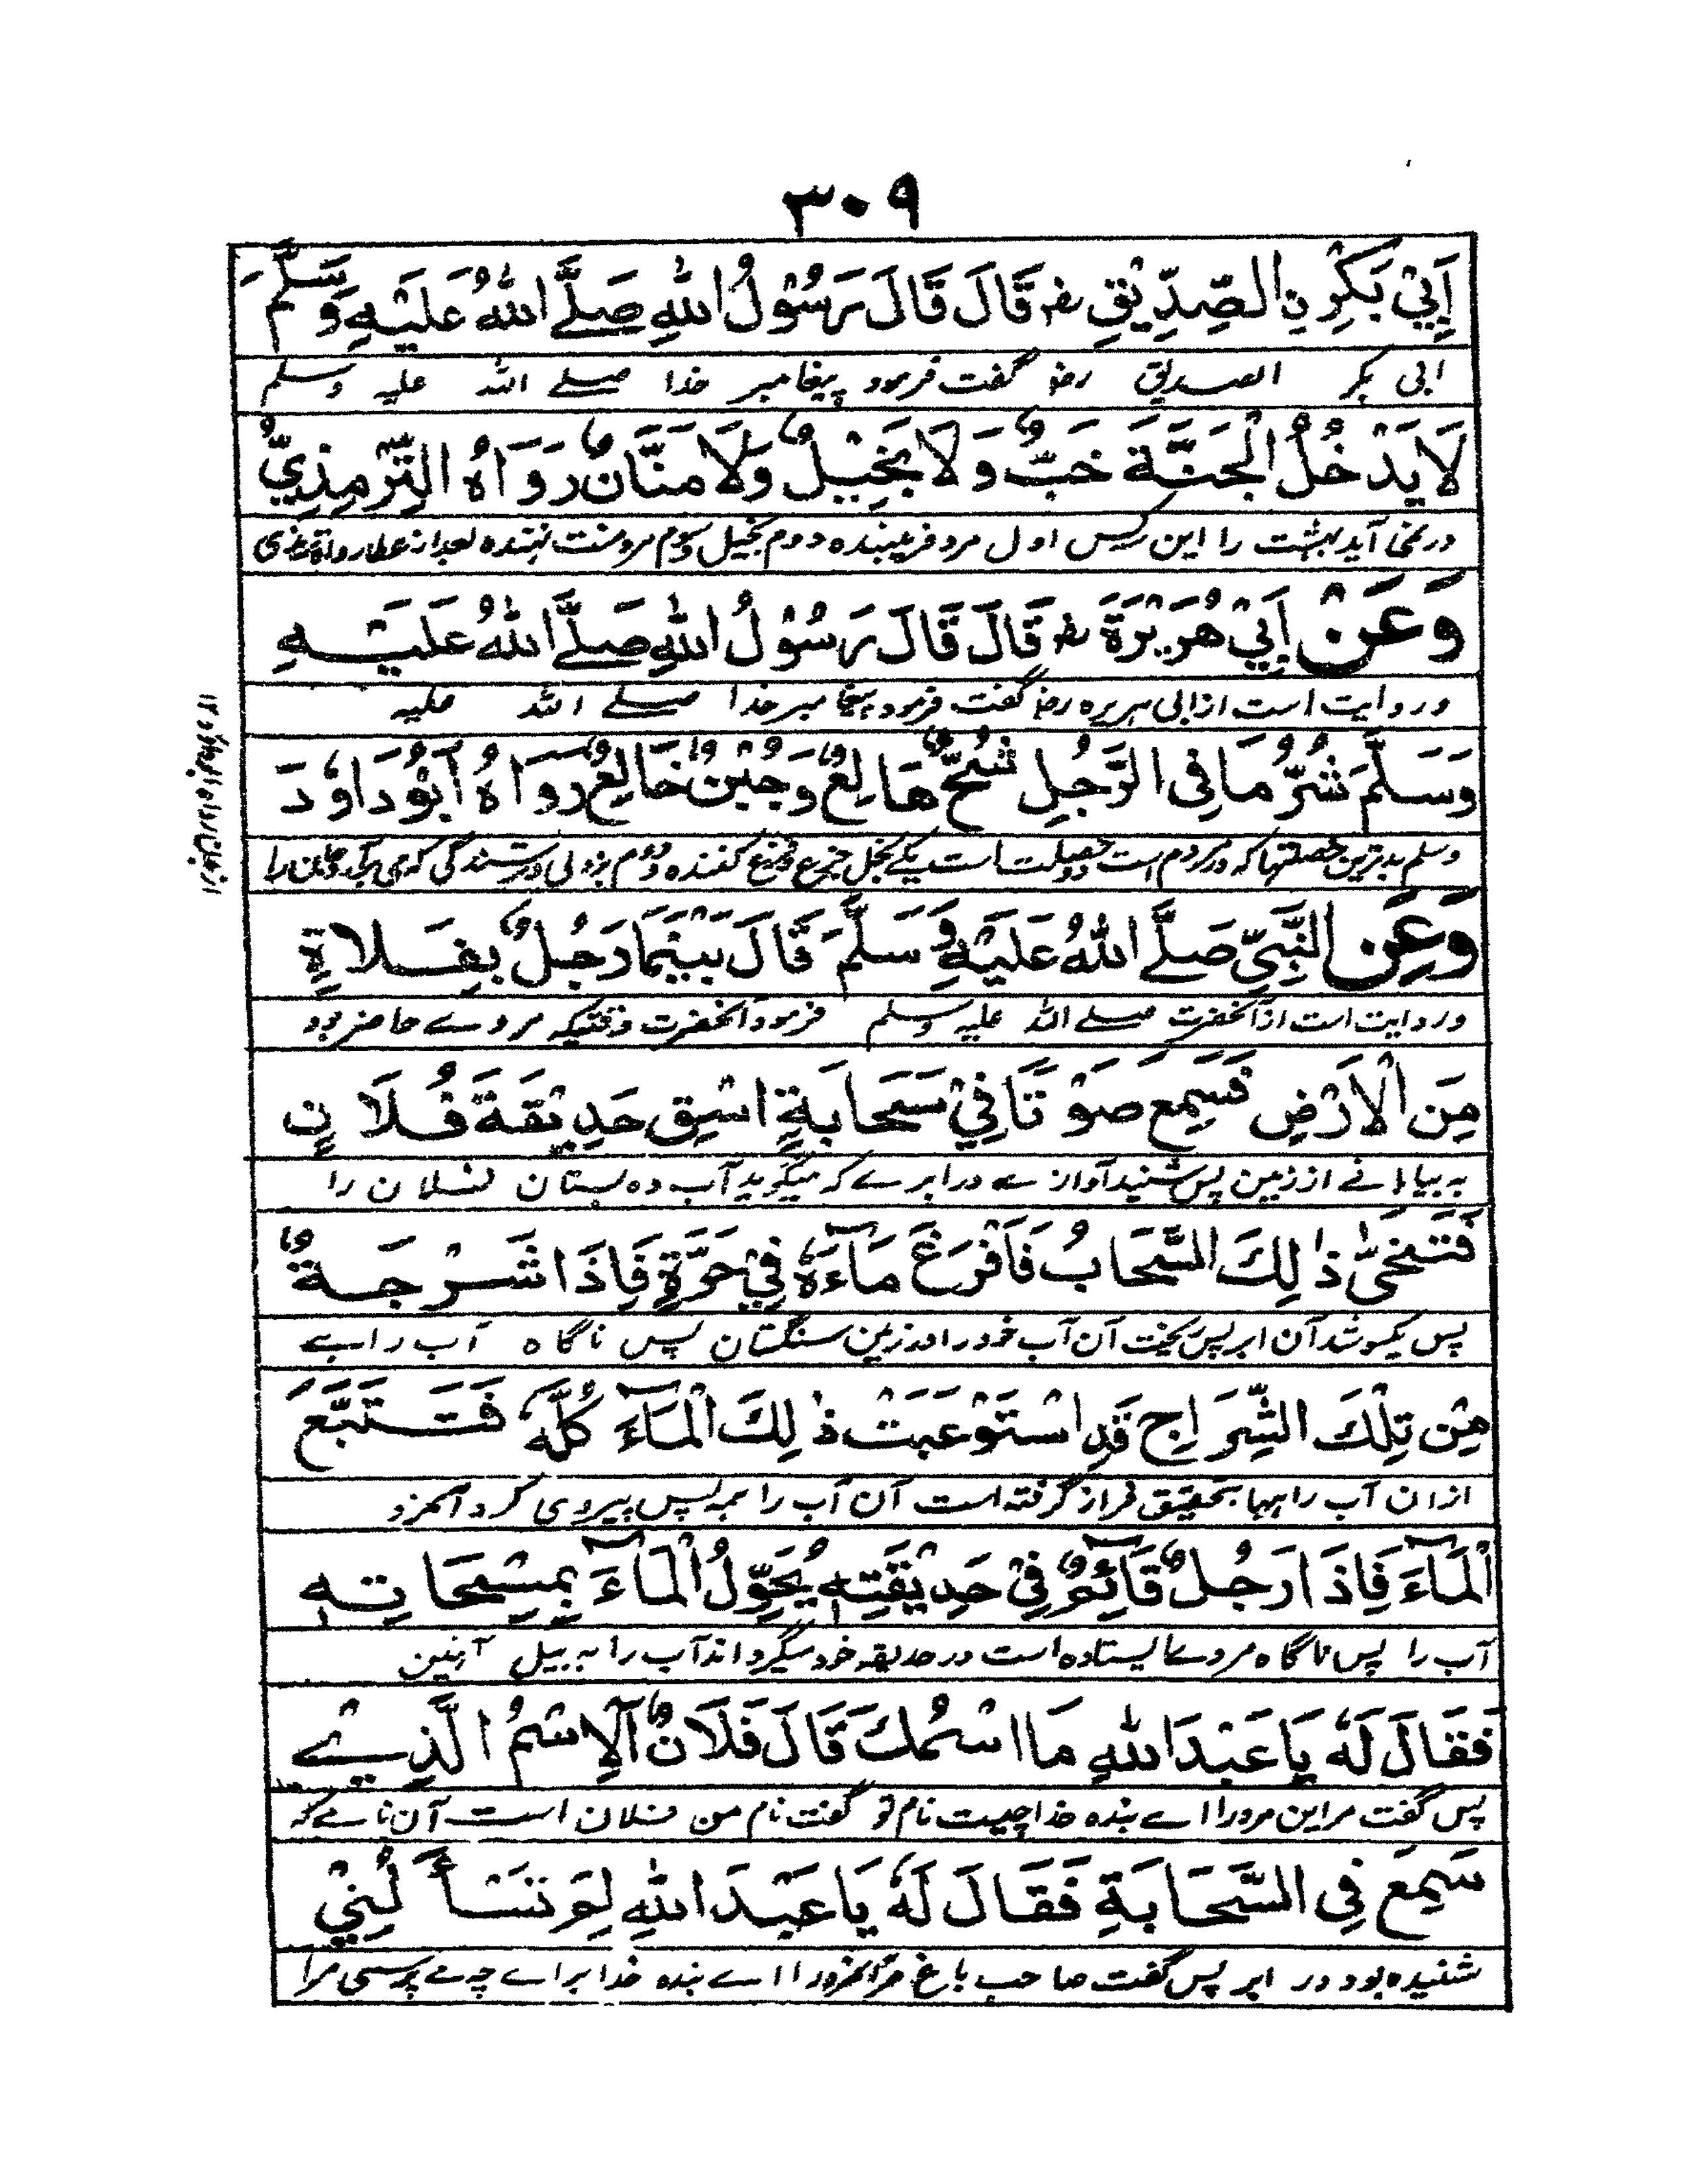 ٣٠٩
اَبِيْ بَكْرِنِ الصِّدِّيْقِ رض قَالَ قَالَ رَسُوْلُ اللّٰهِ صَلَّے اللّٰهُ عَلَيْهِ وَسَلَّمَ
ابی بکر الصدیق رض گفت فرمود پیغامبر خدا صلے اللہ علیہ وسلم
لَا يَدْخُلُ الْجَنَّةَ خَبٌّ وَلَا بَخِيْلٌ وَلَا مَنَّانٌ رَوَاهُ التِّرْمِذِيُّ
در نمی آید بهشت را این سه کس اول مرد فریبنده دوم بخیل وسوم مرد منت نهنده بعد از عطا رواه ترمذی
وَعَنْ اَبِيْ هُرَيْرَةَ رض قَالَ قَالَ رَسُوْلُ اللّٰهِ صَلَّے اللّٰهُ عَلَيْهِ
وروایت است از ابی هریره رض گفت فرمود پیغامبر خدا صلے اللہ علیہ
وَسَلَّمَ شَرُّ مَا فِی الرَّجُلِ شُحٌّ هَالِعٌ وَجُبْنٌ خَالِعٌ رَوَاهُ اَبُوْ دَاوٗدَ
وسلم بدترین خصلتها که در مردم است دو خصلت است یکے بخل جزع کننده دوم بزدلی
وَعَنِ النَّبِيِّ صَلَّے اللّٰهُ عَلَيْهِ وَسَلَّمَ قَالَ بَيْنَمَا رَجُلٌ بِفَلَاةٍ
وروایت است از آنحضرت صلے اللہ علیہ وسلم فرمود آنحضرت وقتیکه مردے حاضر بود
مِنَ الْاَرْضِ فَسَمِعَ صَوْتًا فِيْ سَحَابَةٍ اسْقِ حَدِيْقَةَ فُلَانٍ
به بیابانے از زمین پس شنید آوازے در ابرے که میگوید آب ده بستان فلان را
فَتَنَحّٰی ذٰلِكَ السَّحَابُ فَاَفْرَغَ مَآءَهٗ فِيْ حَرَّةٍ فَاِذَا شَرْجَةٌ
پس یکسو شد آن ابر پس ریخت آن آب خود را در زمین سنگستان پس ناگاه آب راہے
مِنْ تِلْكَ الشِّرَاجِ قَدِ اسْتَوْعَبَتْ ذٰلِكَ الْمَآءَ كُلَّهٗ فَتَتَبَّعَ
ازان آب راهها بتحقیق فراز گرفته است آن آب را همه پس پیروی کرد آنمرد
الْمَآءَ فَاِذَا رَجُلٌ قَآئِمٌ فِيْ حَدِيْقَتِهٖ يُحَوِّلُ الْمَآءَ بِمِسْحَاتِهٖ
آب را پس ناگاه مردے ایستاده است در حدیقه خود میگرداند آب را به بیل آهنین
فَقَالَ لَهٗ يَا عَبْدَ اللّٰهِ مَا اسْمُكَ قَالَ فُلَانٌ اَلْاِسْمُ الَّذِيْ
پس گفت مر این مرد را اے بنده خدا چیست نام تو گفت نام من فلان است آن نامے که
سَمِعَ فِی السَّحَابَةِ فَقَالَ لَهٗ يَا عَبْدَ اللّٰهِ لِمَ تَسْأَلُنِيْ
شنیده بود در ابر پس گفت صاحب باغ مر آنمرد را اے بنده خدا براے چه مے پرسی مرا